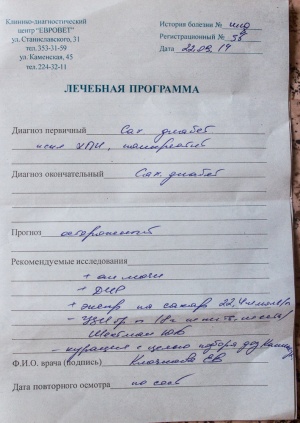 Клинико-диагностический
центр "ЕВРОВЕТ"
ул. Станиславского, 31
тел. 353-31-59
ул. Каменская, 45
тел. 224-32-11
История болезни №
Регистрационный № 58
Дата 22.09.14
ЛЕЧЕБНАЯ ПРОГРАММА
Диагноз первичный Сах. диабет
искл ХПН, панкреатит
Диагноз окончательный Сах. диабет
Прогноз осторожный
Рекомендуемые исследования
+ ан мочи
+
+ экспр на сахар 22,4 ммоль/л
- УЗИ бр п
- курация с целью подбора доз
Ф.И.О. врача (подпись) ЕВ
Дата повторного осмотра по сост